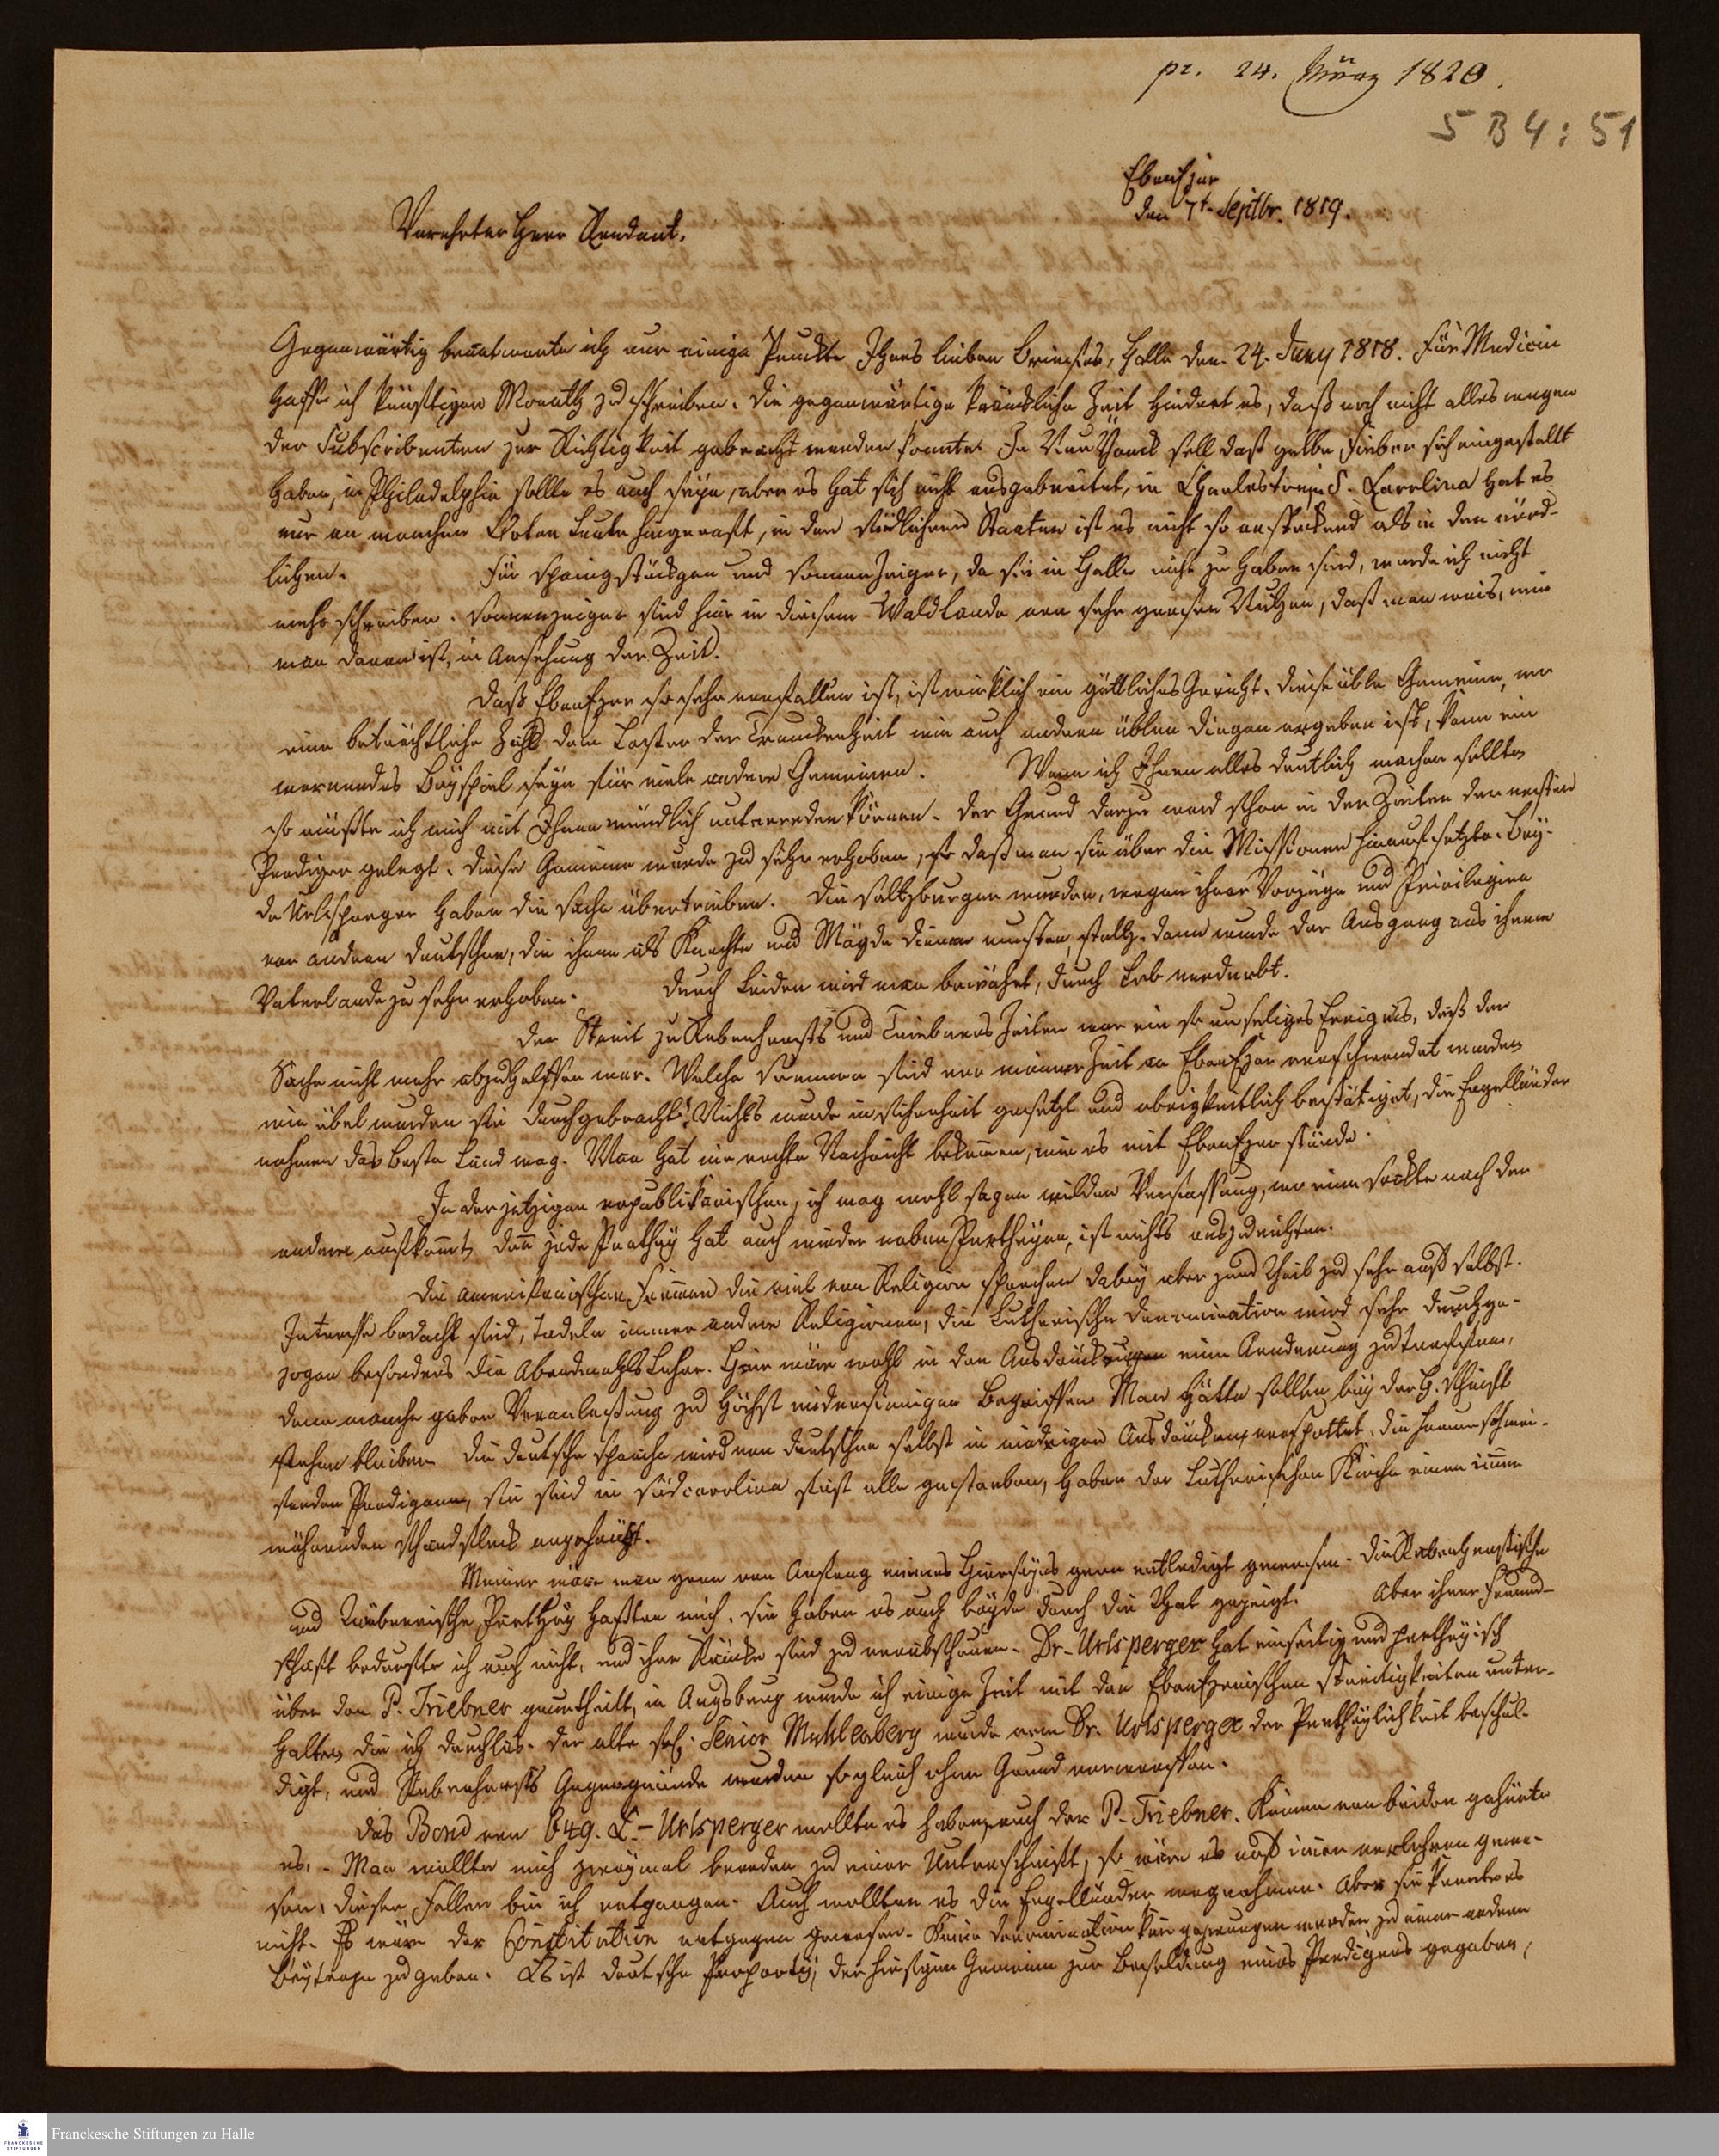 pr. 24. März 1820.
5 B 4 : 51
Ebenezer
den 7t. Septbr. 1819.
Verehrter Herr Rendant.
Gegenwärtig beantworte ich nur einige Puncte Ihres lieben Briefes, Halle den 24. Juny 1818. Für Medicin
hoffe ich künftigen Monath zu schreiben. Die gegenwärtige kränkliche Zeit hindert es, daß noch nicht alles wegen
der Subscribenten zur Richtigkeit gebracht werden konnte. In Neu Yorck soll daß gelbe Fieber sich eingestellt
haben, in Philadelphia sollte es auch seyn, aber es hat sich nicht ausgebreitet, in Charlestown S. Carolina hat es
nur an manchen Orten Leute hingerafft, in den südlichern Staaten ist es nicht so ansteckend als in den nörd-
lichen. Für und Sonnenzeiger, da sie in Halle nicht zu haben sind, werde ich nicht
mehr schreiben. Sonnenzeiger sind hier in diesem Waldlande von sehr grosen Nutzen, daß man weis, wie
man daran ist, in Ansehung der Zeit.
Daß Ebenezer so sehr verfallen ist, ist wirklich ein göttliches Gericht. Diese üble Gemeine, wo
eine beträchtliche Zahl dem Laster der Trunckenheit wie auch andern üblen Dingen ergeben ist, kann ein
warnendes Beyspiel seyn für viele andere Gemeinen. Wenn ich Ihnen alles deutlich machen sollte
so müßte ich mich mit Ihnen mündlich unterreden können. Der Grund darzu ward schon in den Zeiten der ersten
Prediger gelegt. Diese Gemeine wurde zu sehr erhoben, so daß man sie über die Missionen hinauf setzte. Bey-
de Urlsperger haben die Sache übertrieben. Die Saltzburger wurden, wegen ihrer Vorzüge und Privilegien
vor andern Deutschen, die ihnen als Knechte und Mägde dienen musten, stoltz. Dann wurde der Ausgang aus ihrem
Vaterlande zu sehr erhoben. Durch Leiden wird man bewährt, durch Lob verderbt.
Der Streit zu Rabenhorsts und Triebners Zeiten war ein so unseliges Ereignis, daß der
Sache nicht mehr abzuhelffen war. Welche Summen sind vor meiner Zeit an Ebenezer verschwendet worden
wie übel wurden sie durchgebracht! Nichts wurde in Sicherheit gesetzt und obrigkeitlich bestätiget, die Engelländer
nahmen das beste Land weg. Man hat nie rechte Nachricht bekommen, wie es mit Ebenezer stünde.
In der jetzigen republikanischen, ich mag wohl sagen wilden Verfassung, wo eine Seckte nach der
andern aufkommt, denn jede Parthey hat auch wieder neben Partheyen, ist nichts auszurichten.
Die amerikanischen Frommen die viel von Religion sprechen dabey aber zum Theil zu sehr auf selbst-
Interesse bedacht sind, tadeln immer andere Religionen, die Lutherische Denomination wird sehr durchge-
zogen besonders die Abendmahls Lehre. Hier wäre wohl in den Ausdrückungen eine Aenderung zu treffen,
denn manche geben Veranlaßung zu höchst widersinnigen Begriffen. Man hätte sollen bey der H. Schrift
stehen bleiben. Die deutsche Sprache wird von Deutschen selbst in niedrigen Ausdrücken verspottet. Die herumschwei-
fenden Predigern, sie sind in Südcarolina fast alle gestorben, haben der Lutherischen Kirche einen immer
währenden Schandfleck angehängt.
Meiner wäre man gern von Anfang meines Hierseyns gern entledigt gewesen. Die Rabenhorstische
und Triebnerische Parthey haßten mich. Sie haben es auch beyde durch die That gezeigt. Aber ihrer Freund-
schaft bedurfte ich auch nicht, und ihre Ränke sind zu verabscheuen. Dr. Urlsperger hat einseitig und partheyisch
über den P. Triebner geurtheilt, in Augsburg wurde ich einige Zeit mit den Ebenezerischen Streitigkeiten unter-
halten, die ich durchlas. Der alte sel. Senior Muhlenberg wurde vom Dr. Urlsperger der Partheylichkeit beschul-
digt, und Rabenhorsts Gegengründe wurden sogleich ohne Grund verworffen.
Das Bond von 649. £. Urlsperger wollte es haben, auch der P. Triebner. Keinem von beiden gehörte
es. Man wollte mich zweymal bereden zu einer Unterschrifft, so wäre es auf immer verlohren gewe-
sen, diesen Fallen bin ich entgangen. Auch wollten es die Engelländer wegnehmen. Aber sie konntens
nicht. Es wäre der Constitution entgegen gewesen. Keine Denomination kan gezwungen werden zu einer andern
Beyträge zu geben. Es ist deutsche Property, der hiesigen Gemeine zur Besoldung eines Predigers gegeben,
Franckesche Stiftungen zu Halle